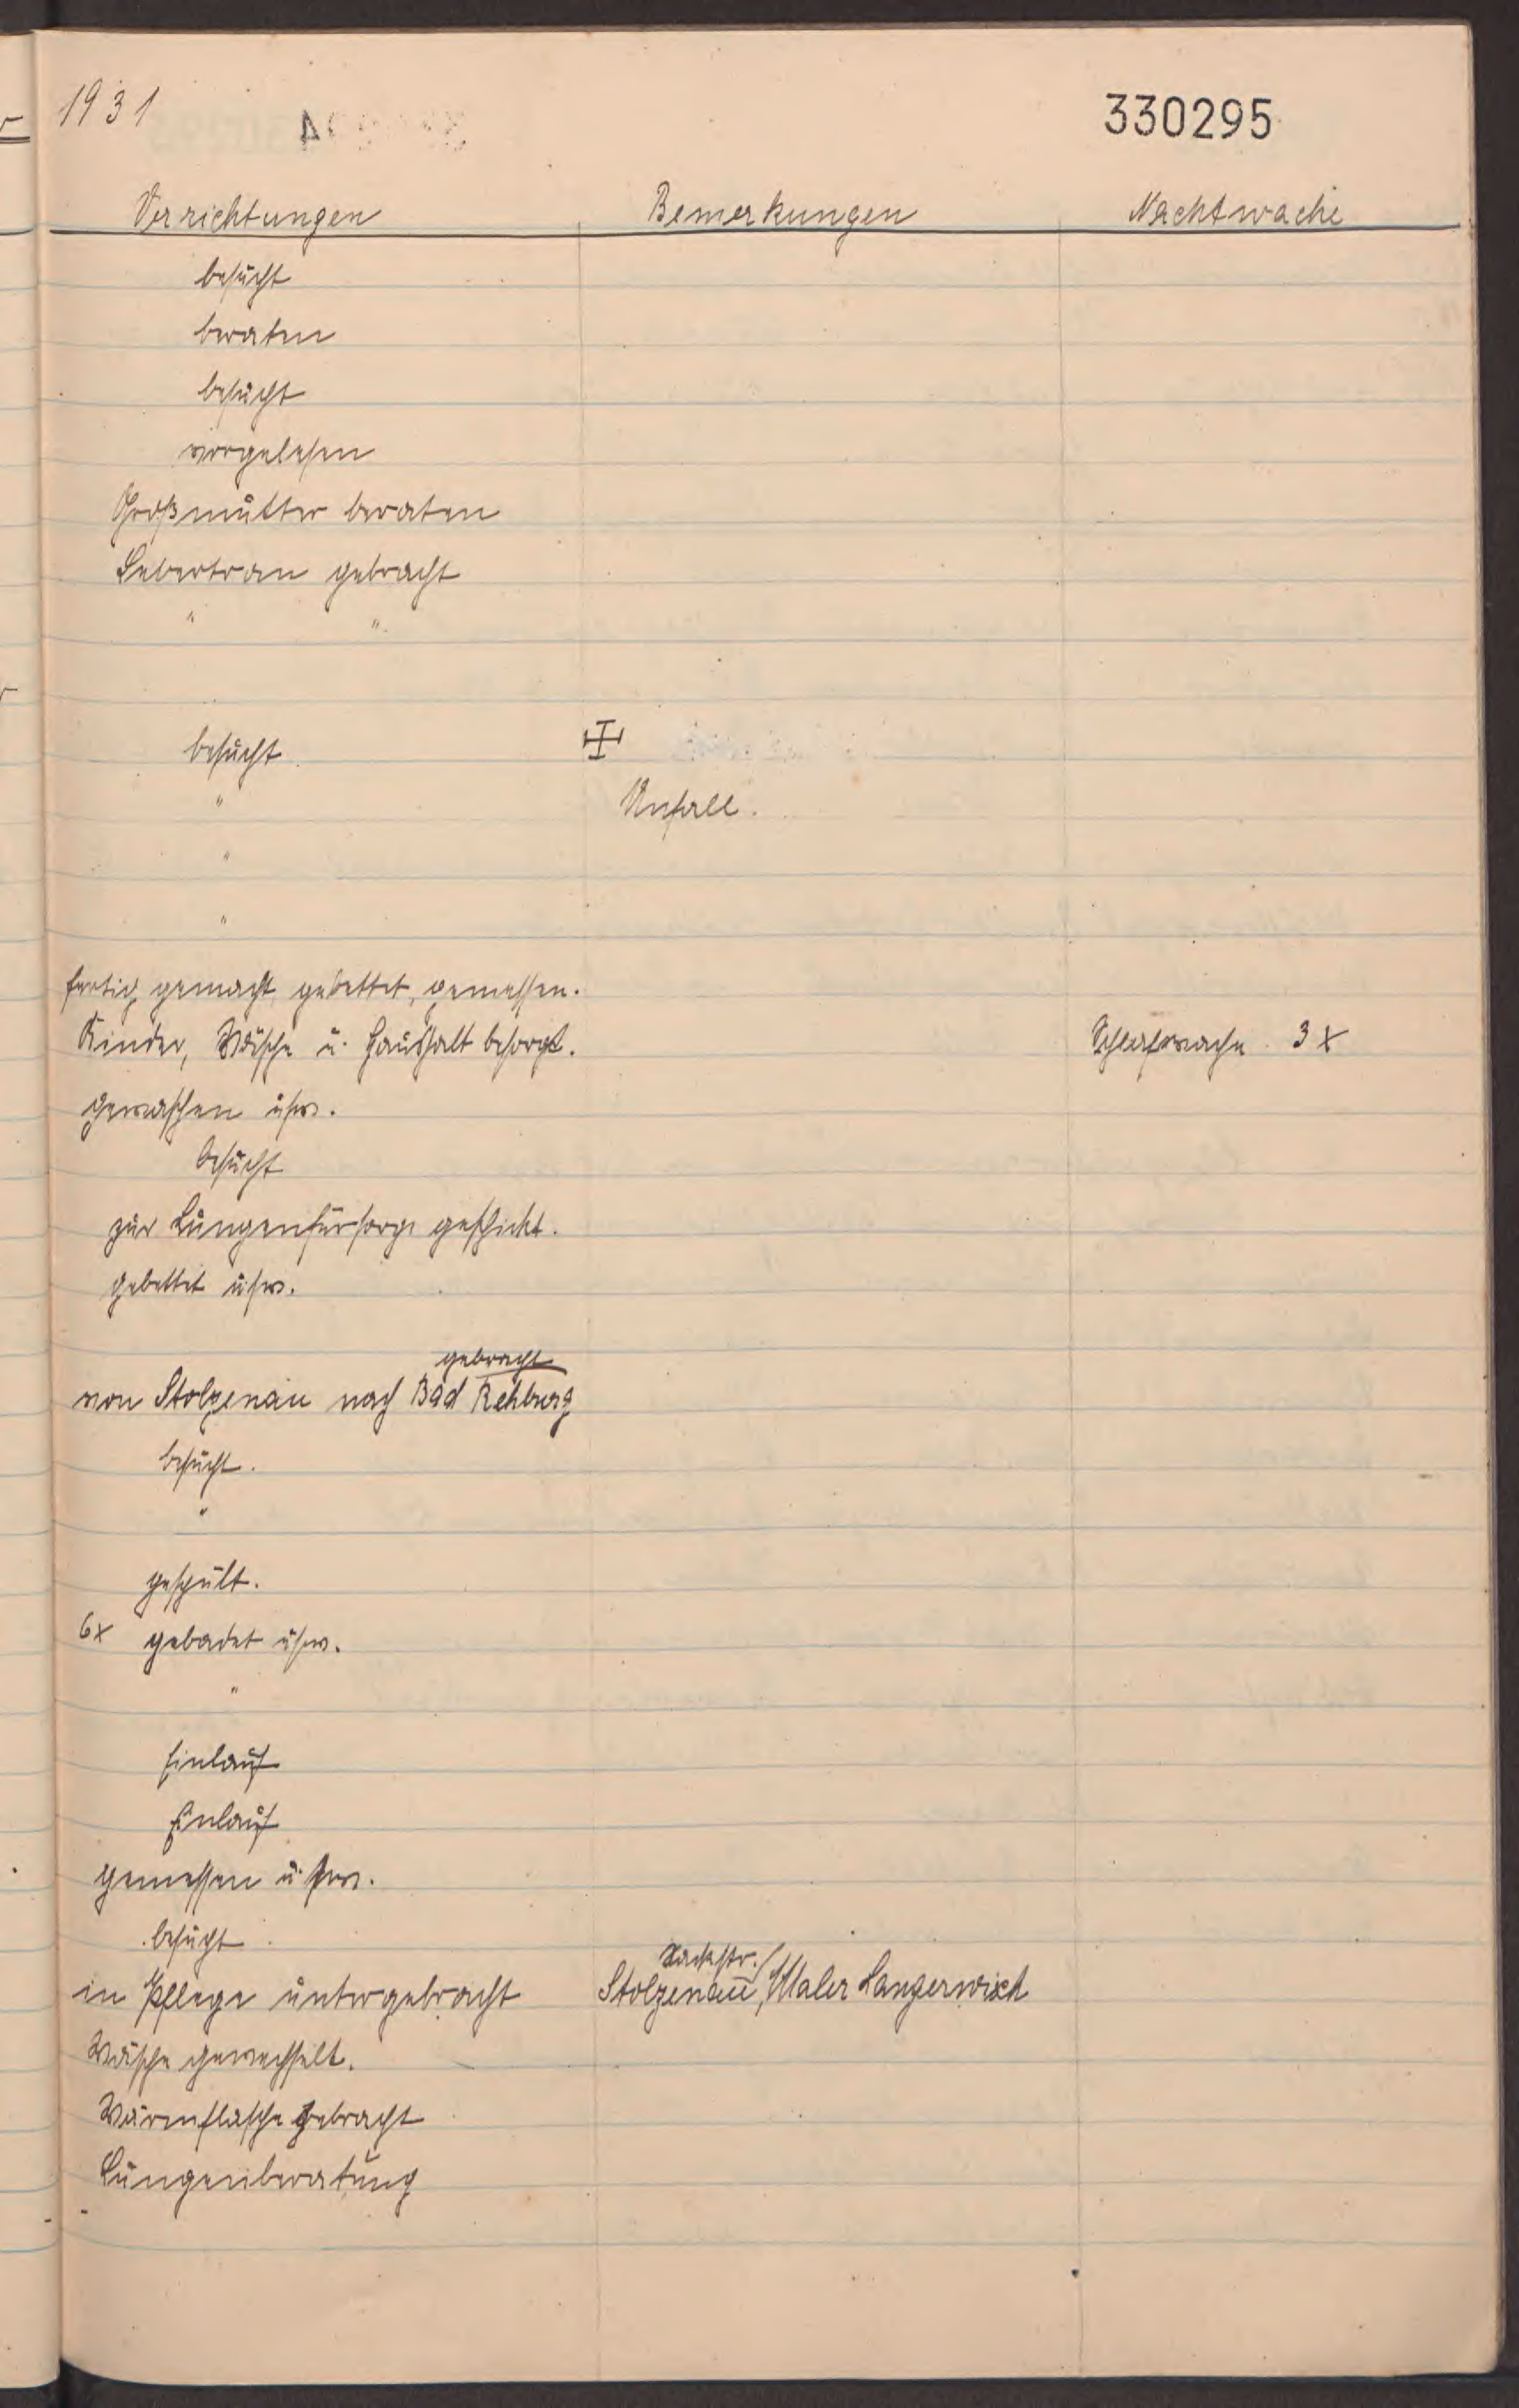 1931
330295
Verrichtungen Bemerkungen Nachtwache
besucht
beraten
besucht
vorgelesen
Großmutter beraten
Lebertran gebracht
" "
besucht
" Unfall.
"
"
fertig gemacht, gebettet, gemessen.
Kinder, Wäsche u. Haushalt besorgt. Schlafwache 3 x
gewaschen usw.
besucht
zur Lungenfürsorge geschickt.
gebettet usw.
gebracht
von Stolzenau nach Bad Rehburg
besucht.
"
gespült.
6x gebadet usw.
"
Einlauf
Einlauf
gemessen u. sw.
besucht
in Pflege untergebracht Stolzenau, Maler Langerwisch
Wäsche gewechselt.
Wärmflasche gebracht
Lungenberatung